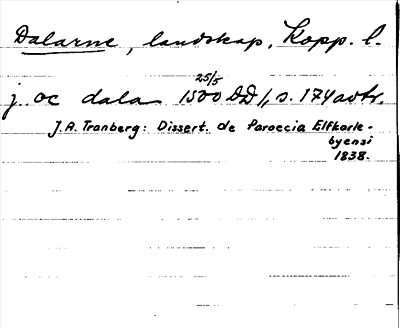 Dalarne, landskap, Kopp. l.
j oc dala 25/5 1500 DD 1, s. 174 avtr.
J.A. Tranberg: Dissert. de Paroecia Elfkarle-
byensi
1838.